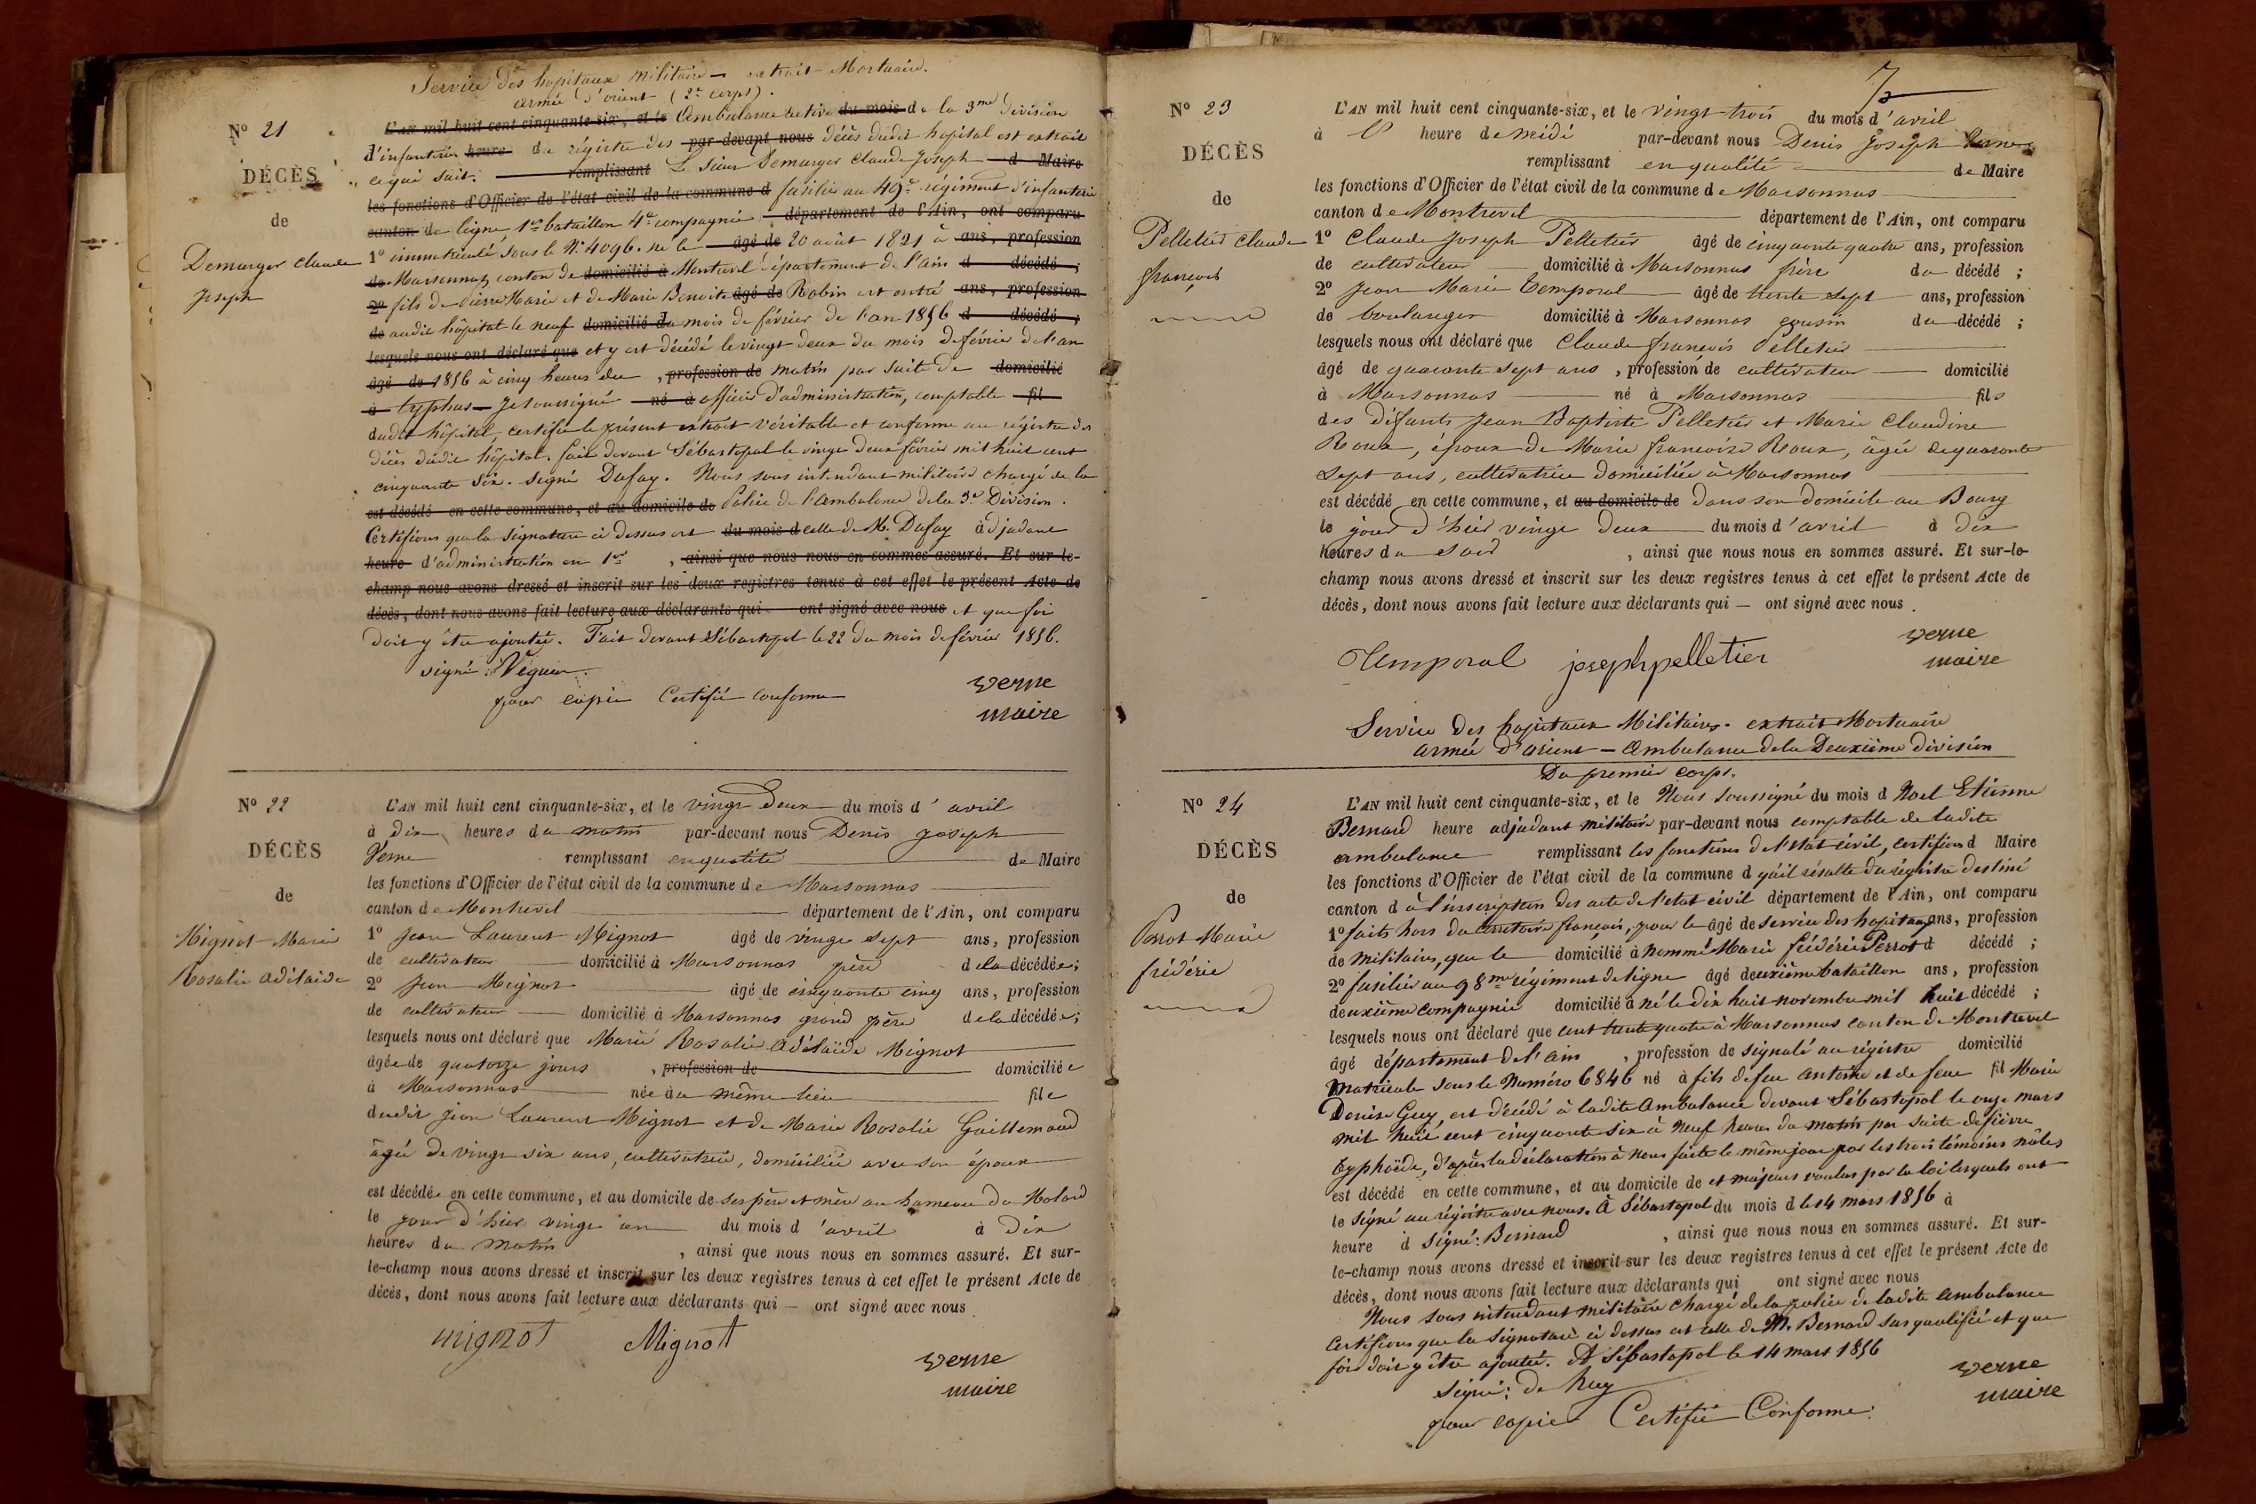 Service des hopitaux militaire — extrait Mortuaire.
armée d'orient (2e corps).
No 21
DÉCÈS
de
Demurger Claude
Joseph
L'AN mil huit cent cinquante-six, et le Ambulance active du mois de la 3me division
d'infanterie heure du régistre des par-devant nous décès dudit hopital est extrait
ce qui suit. remplissant Le Sieur Demurger Claude Joseph d Maire
les fonctions d'Officier de l'état civil de la commune d fusilier au 49e régiment d'infanterie
canton de ligne 1er bataillon 4e compagnie département de l'Ain, ont comparu
1o immatriculé sous le No 4096. né le âgé de 20 août 1821 à ans, profession
de Marsonnas, canton de domicilié à Montrevel département de l'ain d décédé ;
2o fils de Pierre Marie et de Marie Benoite âgé de Robin est entré ans, profession
de audit hôpital le neuf domicilié du mois de février de l'an 1856 d décédé ;
lesquels nous ont déclaré que et y est décédé le vingt deux du mois de février de l'an
âgé de 1856 à cinq heures du , profession de matin par suite de domicilié
à typhus — Je soussigné né à officier d'administration, comptable fil
dudit hôpital, certifie le présent extrait véritable et conforme au régistre des
décès dudit hôpital. fait devant Sébastopol le vingt deux février mil huit cent
cinquante six. signé Dufay. Nous sous intendant militaire chargé de la
est décédé en cette commune, et au domicile de Police de l'ambulance de la 3e Division.
Certifions que la signature ci dessus est du mois d celle de M. Dufay adjudant
heure d'administration en 1er , ainsi que nous nous en sommes assuré. Et sur-le-
champ nous avons dressé et inscrit sur les deux registres tenus à cet effet le présent Acte de
décès, dont nous avons fait lecture aux déclarants qui ont signé avec nous et que foi
doit y être ajoutée. Fait devant Sébastopol le 22 du mois de février 1856.
signé : Viguier.
pour copie Certifié conforme
verne
maire
No 22
DÉCÈS
de
Mignot Marie
Rosalie adélaïde
L'AN mil huit cent cinquante-six, et le vingt Deux du mois d'avril
à dix heures du matin par-devant nous Denis Joseph
Verne remplissant en qualité de Maire
les fonctions d'Officier de l'état civil de la commune de Marsonnas
canton de Montrevel département de l'Ain, ont comparu
1o Jean Laurent Mignot âgé de vingt sept ans, profession
de cultivateur domicilié à Marsonnas père de la décédée ;
2o Jean Mignot âgé de cinquante cinq ans, profession
de cultivateur domicilié à Marsonnas grand père de la décédée ;
lesquels nous ont déclaré que Marie Rosalie adélaïde Mignot
âgée de quatorze jours , profession de domiciliée
à Marsonnas née du même lieu file
dudit Jean Laurent Mignot et de Marie Rosalie Guillemaud
âgée de vingt six ans, cultivatrice, domiciliée avec son époux
est décédée en cette commune, et au domicile de ses père et mère au hameau du Molard
le jour d'hier vingt un du mois d'avril à dix
heures du matin , ainsi que nous nous en sommes assuré. Et sur-
le-champ nous avons dressé et inscrit sur les deux registres tenus à cet effet le présent Acte de
décès, dont nous avons fait lecture aux déclarants qui — ont signé avec nous
mignot Mignot
verne
maire
7
No 23
DÉCÈS
de
Pelletier Claude
françois
L'AN mil huit cent cinquante-six, et le vingt trois du mois d'avril
à l' heure de midi par-devant nous Denis Joseph Verne
remplissant en qualité de Maire
les fonctions d'Officier de l'état civil de la commune de Marsonnas
canton de Montrevel département de l'Ain, ont comparu
1o Claude Joseph Pelletier âgé de cinquante quatre ans, profession
de cultivateur domicilié à Marsonnas frère du décédé ;
2o Jean Marie Temporal âgé de trente sept ans, profession
de boulanger domicilié à Marsonnas cousin du décédé ;
lesquels nous ont déclaré que Claude françois Pelletier
âgé de quarante sept ans , profession de cultivateur domicilié
à Marsonnas né à Marsonnas fils
des défunts Jean Baptiste Pelletier et Marie Claudine
Roux, époux de Marie françoise Roux, âgée de quarante
sept ans, cultivatrice domiciliée à Marsonnas
est décédé en cette commune, et au domicile de dans son domicile au Bourg
le jour d'hier vingt deux du mois d'avril à dix
heures du soir , ainsi que nous nous en sommes assuré. Et sur-le-
champ nous avons dressé et inscrit sur les deux registres tenus à cet effet le présent Acte de
décès, dont nous avons fait lecture aux déclarants qui — ont signé avec nous.
Temporal joseph pelletier
verne
maire
Service des hopitaux Militaires. extrait Mortuaire
armée d'orient — Ambulance de la Deuxième division
Du premier corps.
No 24
DÉCÈS
de
Perrot Marie
frédéric
L'AN mil huit cent cinquante-six, et le Nous soussigné du mois d Noel Etienne
Bernard heure adjudant militaire par-devant nous comptable de ladite
ambulance remplissant les fonctions de l'état civil, certifions d Maire
les fonctions d'Officier de l'état civil de la commune d qu'il résulte du régistre destiné
canton d à l'inscription des acte de l'état civil département de l'Ain, ont comparu
1o faits hors du territoire français, pour le âgé de service des hopitaux ans, profession
de militaires, que le domicilié à nommé Marie frédéric Perrot d décédé ;
2o fusilier au 98me régiment de ligne âgé deuxième bataillon ans, profession
deuxième compagnie domicilié à né le dix huit novembre mil huit décédé ;
lesquels nous ont déclaré que cent trente quatre à Marsonnas canton de Montrevel
âgé département de l'ain , profession de signalé au régistre domicilié
matricule sous le Numéro 6846 né à fils de feu antoine et de feue fil Marie
Denise Guy, est décédé à ladite Ambulance devant Sébastopol le onze mars
mil huit cent cinquante six à neuf heures du matin par suite de fièvre
typhoïde, d'après la déclaration à nous faite le même jour par les trois témoins mâles
est décédé en cette commune, et au domicile de et majeurs voulus par la loi lesquels ont
le signé au régistre avec nous. A Sébastopol du mois d le 14 mars 1856 à
heure d signé : Bernard , ainsi que nous nous en sommes assuré. Et sur-
le-champ nous avons dressé et inscrit sur les deux registres tenus à cet effet le présent Acte de
décès, dont nous avons fait lecture aux déclarants qui ont signé avec nous
Nous sous intendant militaire chargé de la police de ladite ambulance
certifions que la signature ci dessus est celle de M. Bernard sus qualifié et que
foi doit y être ajoutée. A Sébastopol le 14 mars 1856
signé : de huy
pour copie Certifié Conforme.
verne
maire